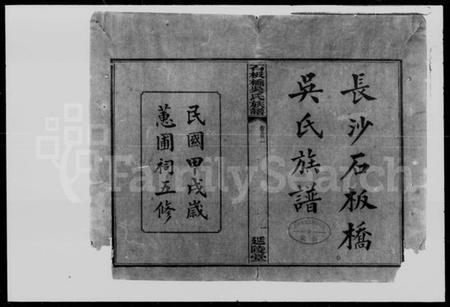 長沙石板橋
吳氏族譜
石板橋吳氏族譜
延陵堂
民國甲戌歲
蕙圃祠五修
FamilySearch